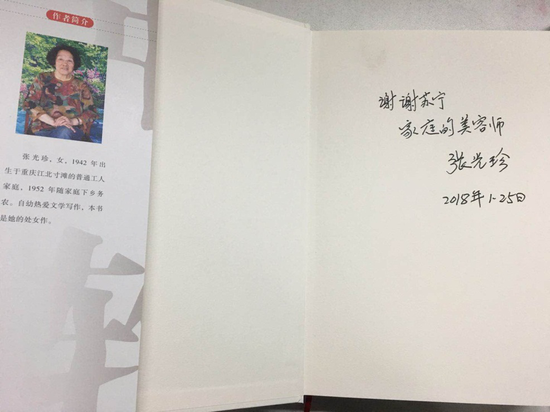 作者简介
张光珍，女，1942 年出
生于重庆江北寸滩的普通工人
家庭，1952 年随家庭下乡务
农。自幼热爱文学写作，本书
是她的处女作。
谢谢苏宁
家庭的美容师
张光珍
2018年1-25日